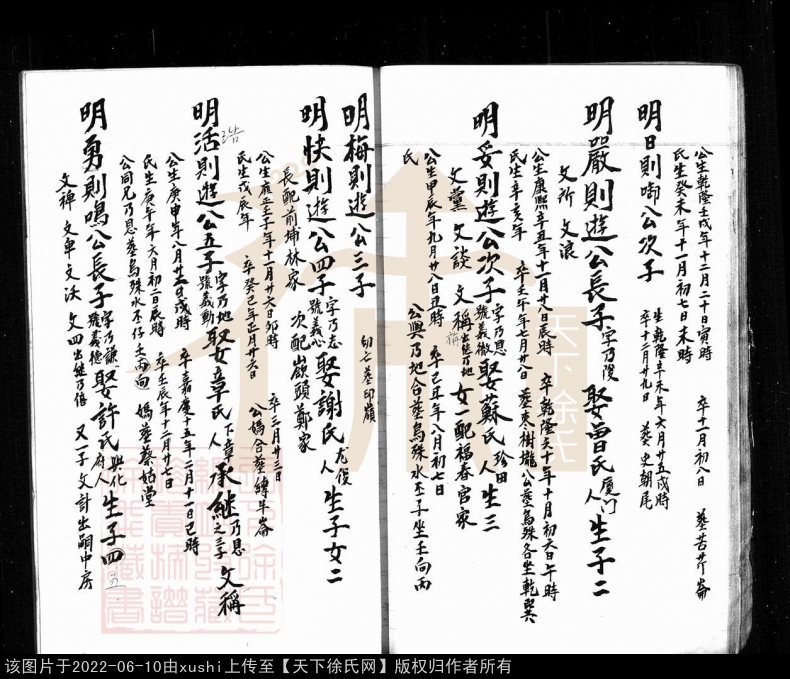 公生乾隆壬戌年十二月二十日寅時 卒十一月初八 葬苦芹崙
氏生癸未年十一月初七日未時
明日則啣公次子 生乾隆辛未年六月廿五戌時 卒十二月廿九 葬史朝尾
明嚴則遊公長子 字乃段 娶曾氏 厦门人 生子二
文所 文浪
公生康熙辛丑年十一月廿八日辰時 卒乾隆三十年十月初六日午時
民生辛亥年 卒壬午年七月廿八日 葬枣樹壠 公葬烏殊各坐乾巽
明妥則遊公次子 字乃恩 號義微 娶蘇氏 珍田人 生三
文黨 文談 文稱 出继乃地 女一配福春官家
公生甲辰年九月廿八日丑時 卒己丑年八月初七日
氏 公與乃地合葬烏殊水丕子坐壬向丙
明梅則遊公三子 幼亡葬印嶺
明快則遊公四子 字乃志 號義心 娶謝氏 尤俊人 生子女二
長配前埔林家 次配嶺頭鄭家
公生雍正壬子年十一月廿六日卯時 卒三月廿三日
民生戊辰年 卒癸己年正月廿六日 公媽合葬縛旱崙
明活則遊公五子 字乃地 號義勤 娶章氏 下章人 承繼乃恩之三子文稱
公生庚申年八月廿三日戌時 卒嘉慶十五年二月十一日己時
民生庚午年六月初二日辰時 卒壬辰年十二月廿一日
公同兄乃恩葬烏殊水丕仔壬丙向 媽葬蔡姑堂
明勇則鳴公長子 字乃謙 號義德 娶許氏 興化府人 生子四
五
文禅 文車 文沃 文四出继乃僖 又一子文計出嗣中房
天下徐氏
该图片于2022-06-10由xushi上传至【天下徐氏网】版权归作者所有